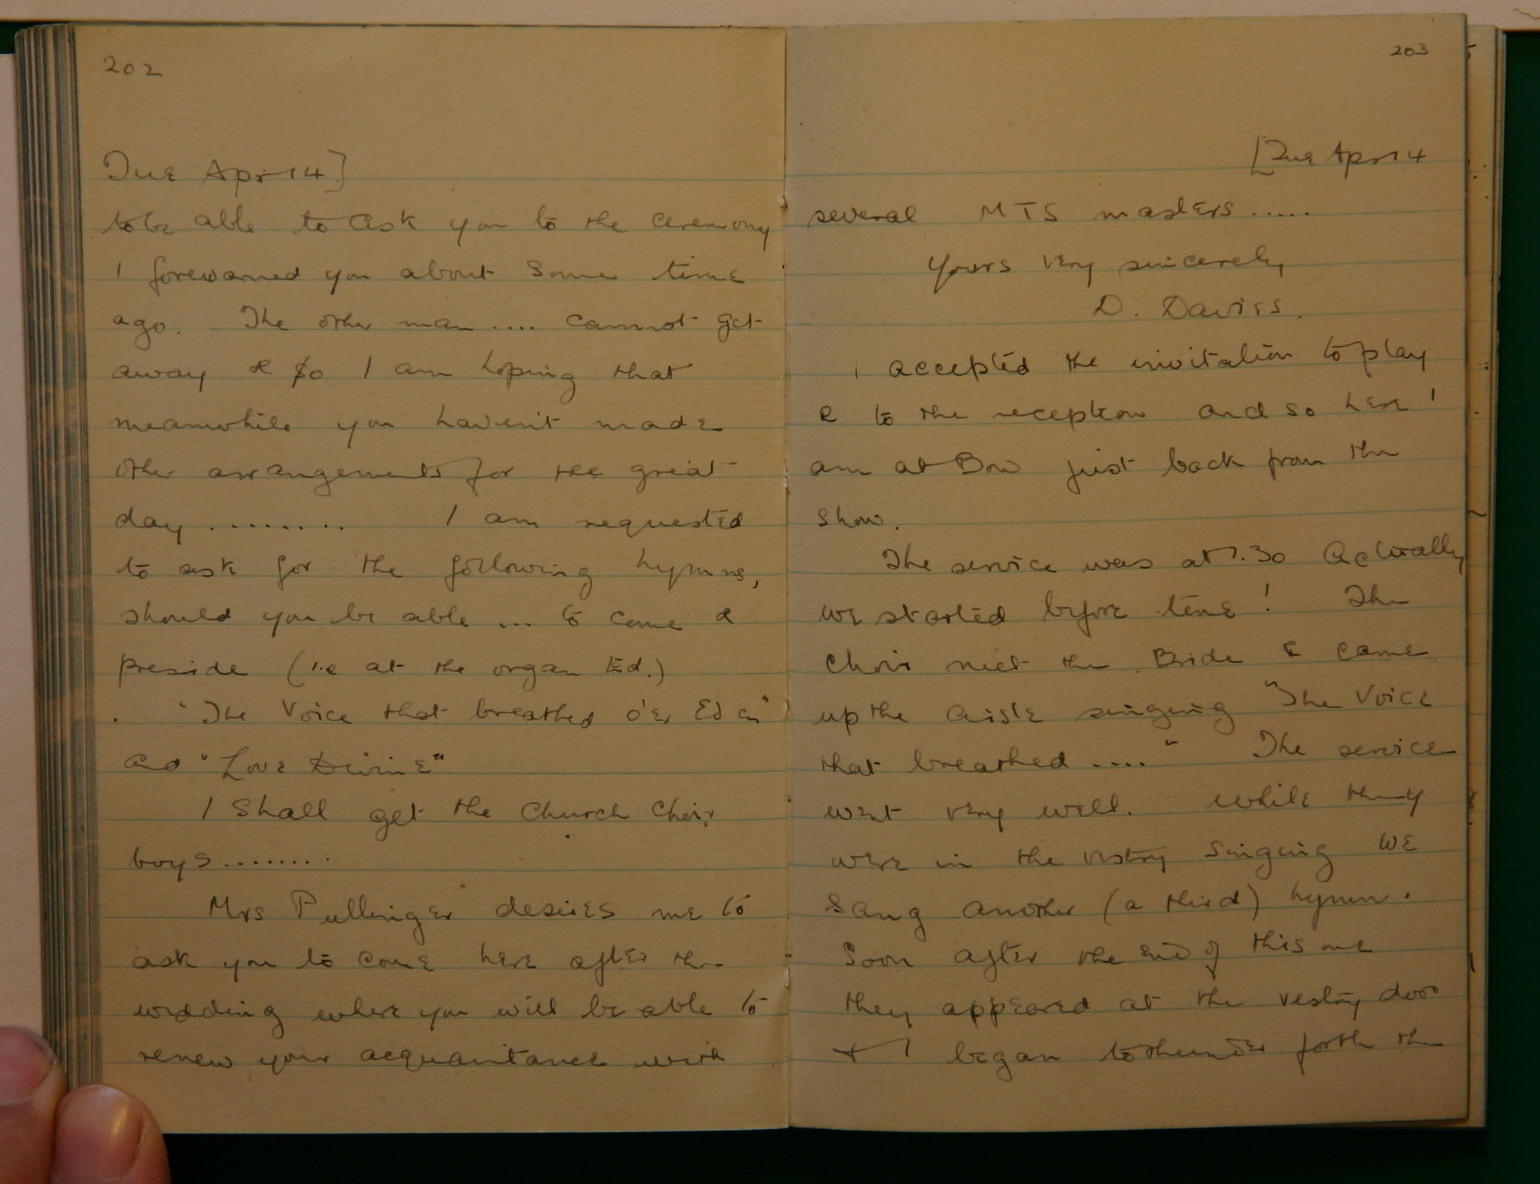 202
Tue Apr 14]
to be able to ask you to the ceremony
I forewarned you about some time
ago. The other man .... cannot get
away & so I am hoping that
meanwhile you haven't made
other arrangements for the great
day ........ I am requested
to ask for the following hymns,
should you be able ... to come &
preside (i.e at the organ Ed.)
"The Voice that breathed o'er Eden"
and "Love Divine"
I shall get the Church Choir
boys........
Mrs Pullinger desires me to
ask you to come here after the
wedding where you will be able to
renew your acquaintance with
203
[Tue Apr 14
several MTS masters.....
Yours very sincerely
D. Davies.
I accepted the invitation to play
& to the reception and so here I
am at Bow just back from the
show.
The service was at 1.30 Actually
we started before time! The
Choir meet the Bride & came
up the aisle singing "The Voice
that breathed ...." The service
went very well. While they
were in the vestry singing we
sang another (a third) hymn.
Soon after the end of this one
they appeared at the vestry door
& I began to thunder forth the